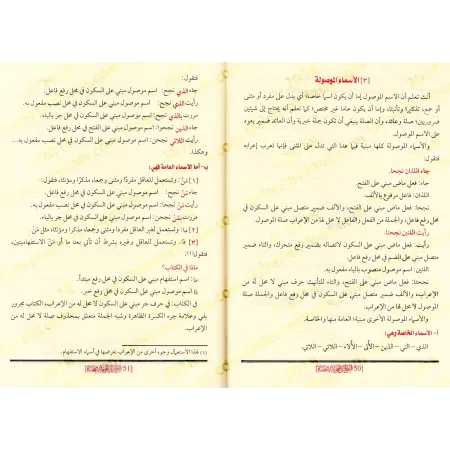 [٣] الأسماء الموصولة
أنت تعلم أن الاسم الموصول إما أن يكون اسما خاصا؛ أي يدل على مفرد أو مثنى
أو جمع، تذكيرا وتأنيثا، وإما أن يكون عاما غير مختص؛ كما تعلم أنه يحتاج إلى شيئين
ضروريين: صلة وعائد، وأن الصلة ينبغي أن تكون جملة خبرية وأن العائد ضمير يعود
على الاسم الموصول.
والأسماء الموصولة كلها مبنية فيما عدا التي تدل على المثنى فإنها تعرب إعرابه
فتقول:
جاء اللذان نجحا.
جاء: فعل ماض مبني على الفتح.
اللذان: فاعل مرفوع بالألف.
نجحا: فعل ماض مبني على الفتح، والألف ضمير متصل مبني على السكون في
محل رفع فاعل، والجملة من الفعل والفاعل لا محل لها من الإعراب صلة الموصول.
رأيت اللتين نجحتا.
رأيت: فعل ماض مبني على السكون لاتصاله بضمير رفع متحرك، والتاء ضمير
متصل مبني على الضم في محل رفع فاعل.
اللتين: اسم موصول منصوب بالياء مفعول به.
نجحتا: فعل ماض مبني على الفتح، والتاء للتأنيث حرف مبني لا محل له من
الإعراب، والألف ضمير متصل مبني على السكون في محل رفع فاعل والجملة صلة
الموصول لا محل لها من الإعراب.
والأسماء الموصولة الأخرى مبنية؛ العامة منها والخاصة.
أ- الأسماء الخاصة وهي:
الذي – التي – الذين – الألى – الألاء – اللاتي – اللائي.
[50]
فتقول:
جاء الذي نجح: اسم موصول مبني على السكون في محل رفع فاعل.
رأيت الذي نجح: اسم موصول مبني على السكون في محل نصب مفعول به.
مررت بالذي نجح: اسم موصول مبني على السكون في محل جر بالباء.
جاء الذين نجحوا: اسم موصول مبني على الفتح في محل رفع فاعل.
رأيت اللائي: اسم موصول مبني على السكون في محل نصب مفعول به...
وهكذا.
ب- أما الأسماء العامة فهي:
[١] مَنْ: وتستعمل للعاقل مفردا ومثنى وجمعا، مذكرا ومؤنثا، فتقول:
جاء مَنْ نجح: اسم موصول مبني على السكون في محل رفع فاعل.
رأيت مَنْ نجح: اسم موصول مبني على السكون في محل نصب مفعول به.
مررت بمَنْ نجح: اسم موصول مبني على السكون في محل جر بالباء.
[٢] ما: وتستعمل لغير العاقل مفردا ومثنى وجمعا، مذكرا ومؤنثا، مثل مَنْ.
[٣] ذا: وتستعمل للعاقل وغيره بشرط أن تأتي بعد ما أو مَنْ الاستفهاميتين،
فتقول(١):
ماذا في الكتاب؟
ما: اسم استفهام مبني على السكون في محل رفع مبتدأ.
ذا: اسم موصول مبني على السكون في محل رفع خبر.
في الكتاب: في حرف جر مبني على السكون لا محل له من الإعراب، الكتاب مجرور
بفي وعلامة جره الكسرة الظاهرة وشبه الجملة متعلق بمحذوف صلة لا محل له من
الإعراب.
(١) لهذا الاستعمال وجوه أخرى من الإعراب نعرضها في أسماء الاستفهام.
[51]